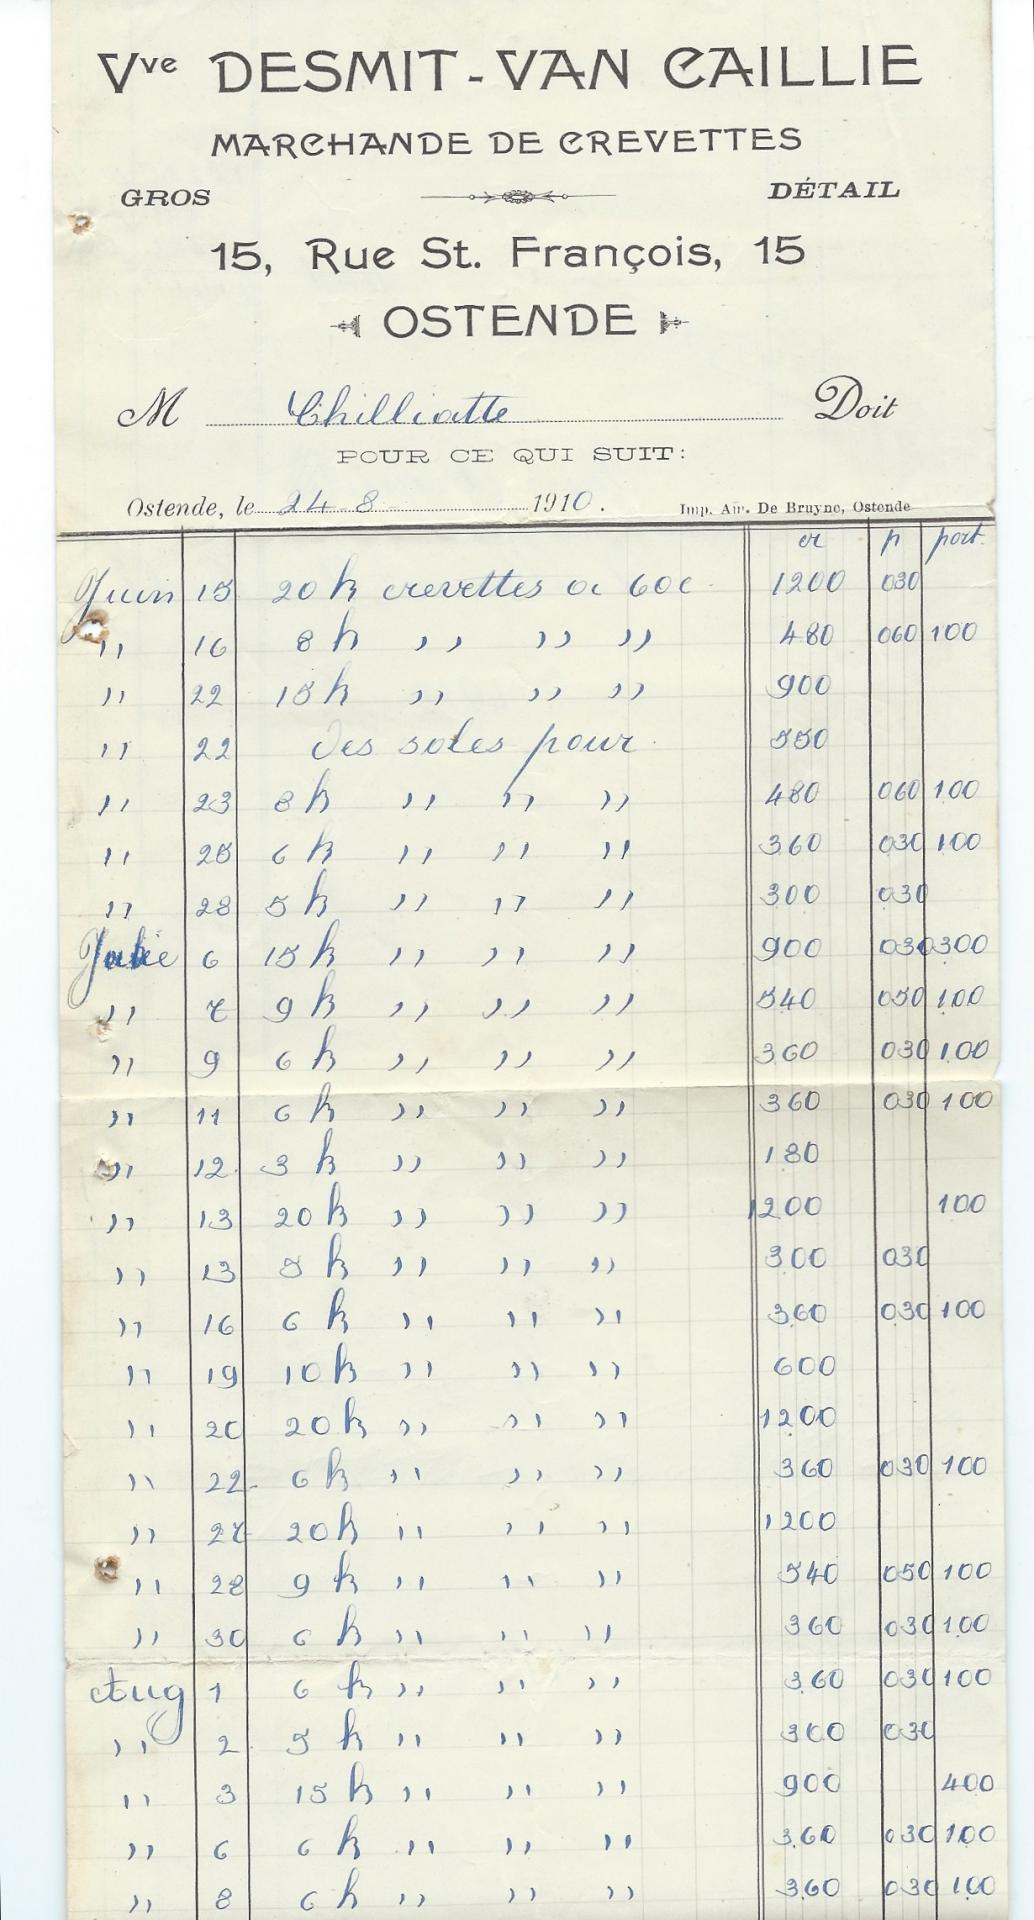 Vve DESMIT-VAN CAILLIE
MARCHANDE DE CREVETTES
GROS DÉTAIL
15, Rue St. François, 15
OSTENDE
M Chilliatte Doit
POUR CE QUI SUIT:
Ostende, le 24-8 1910. Imp. Aug. De Bruyne, Ostende
cr p port.
Juin 15 20 k crevettes a 60 c 1200 030
" 16 8 k " " " 480 060 100
" 22 15 k " " " 900
" 22 des soles pour 550
" 23 8 k " " " 480 060 100
" 25 6 k " " " 360 030 100
" 28 5 k " " " 300 030
6 15 k " " " 900 030 300
" 7 9 k " " " 540 050 100
" 9 6 k " " " 360 030 100
" 11 6 k " " " 360 030 100
" 12 3 k " " " 180
" 13 20 k " " " 1200 100
" 13 5 k " " " 300 030
" 16 6 k " " " 360 030 100
" 19 10 k " " " 600
" 20 20 k " " " 1200
" 22 6 k " " " 360 030 100
" 27 20 k " " " 1200
" 28 9 k " " " 540 050 100
" 30 6 k " " " 360 030 100
Aug 1 6 k " " " 360 030 100
" 2 5 k " " " 300 030
" 3 15 k " " " 900 400
" 6 6 k " " " 360 030 100
" 8 6 k " " " 360 030 100